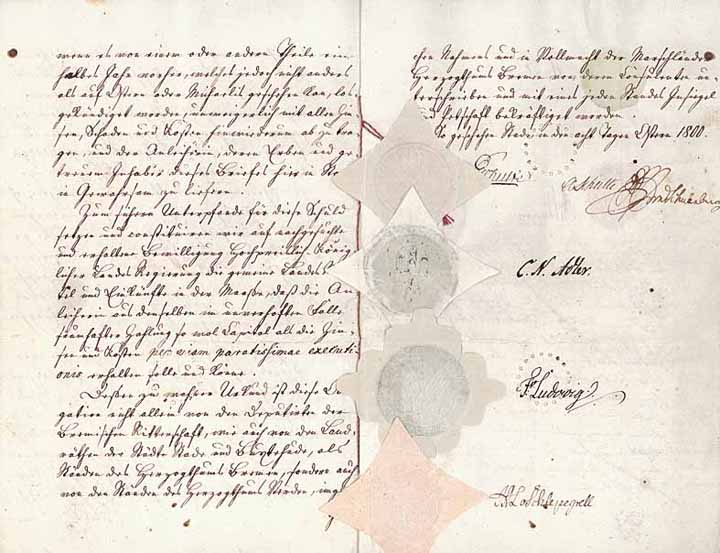 wenn es von einem oder andern Theile ein
halbes Jahr vorher, welches jedoch nicht anders
als auf Ostern oder Michaelis geschehen kan, los
gekündiget worden, unweigerlich mit allen Zin
sen, Schaden und Kosten hinwiederum ab zu tra
gen, und der Anleiherin, deren Erben und ge
treuen Inhaber dieses Briefes hier in Sta
in Gewahrsam zu liefern.
Zum sichern Unterpfande für diese Schuld
setzen und constituiren wir auf nachgesuchte
und erhaltene Bewilligung Hochpreislich. König
licher Landes Regierung die gemeine Landes
und Einkünfte in der Maaße, daß die An
leiherin aus denselben im unverhofften Falle
saumhafter Zahlung so wol Capital als die Zin
sen und Kosten per viam paratissimae executi-
onis erhalten solle und könne.
Deßen zu wahrer Urkund ist diese Ob
ligation nicht allein von den Deputirten der
Bremischen Ritterschaft, wie auch von den Land
räthen der Städte Stade und Buxtehude, als
Ständen des Herzogthums Bremen, sondern auch
von den Ständen des Herzogthums Verden, imgl
chen Nahmens und in Vollmacht der Marschländer
Herzogthums Bremen von deren Consulenten un
terschrieben und mit eines jeden Standes Insigel
und Petschaft bekräftiget worden.
So geschehen Stade in den acht Tagen Ostern 1800.
C. N. Adler.
F. Ludowig.